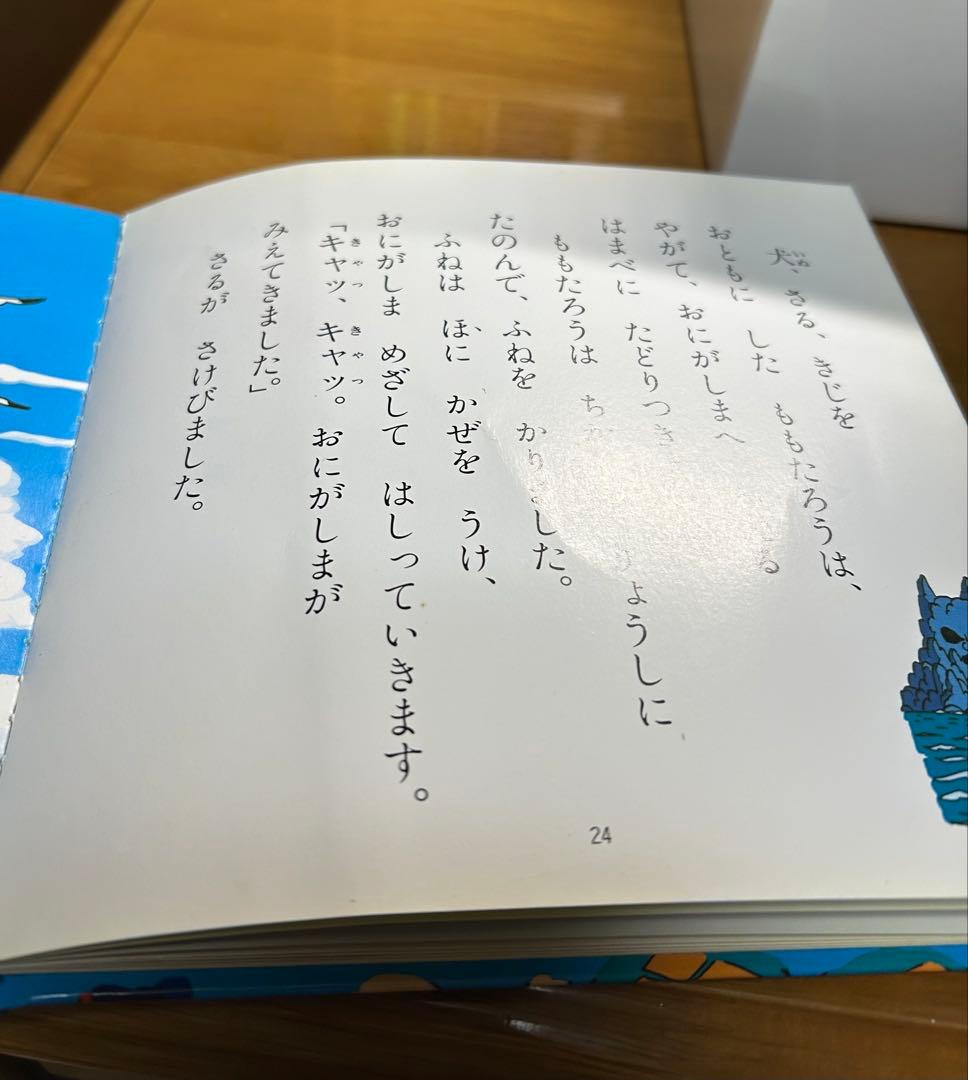 犬、さる、きじを
おともに した ももたろうは、
やがて、おにがしまへ
はまべに たどりつき
ももたろうは りょうしに
たのんで、ふねを かりました。
ふねは ほに かぜを うけ、
おにがしま めざして はしっていきます。
「キャッ、キャッ。おにがしまが
みえてきました。」
さるが さけびました。
24